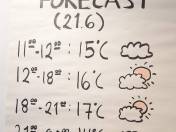 FORECAST
(21.6)
11⁰⁰-12⁰⁰: 15°C
12⁰⁰-18⁰⁰: 16°C
18⁰⁰-21⁰⁰: 17°C